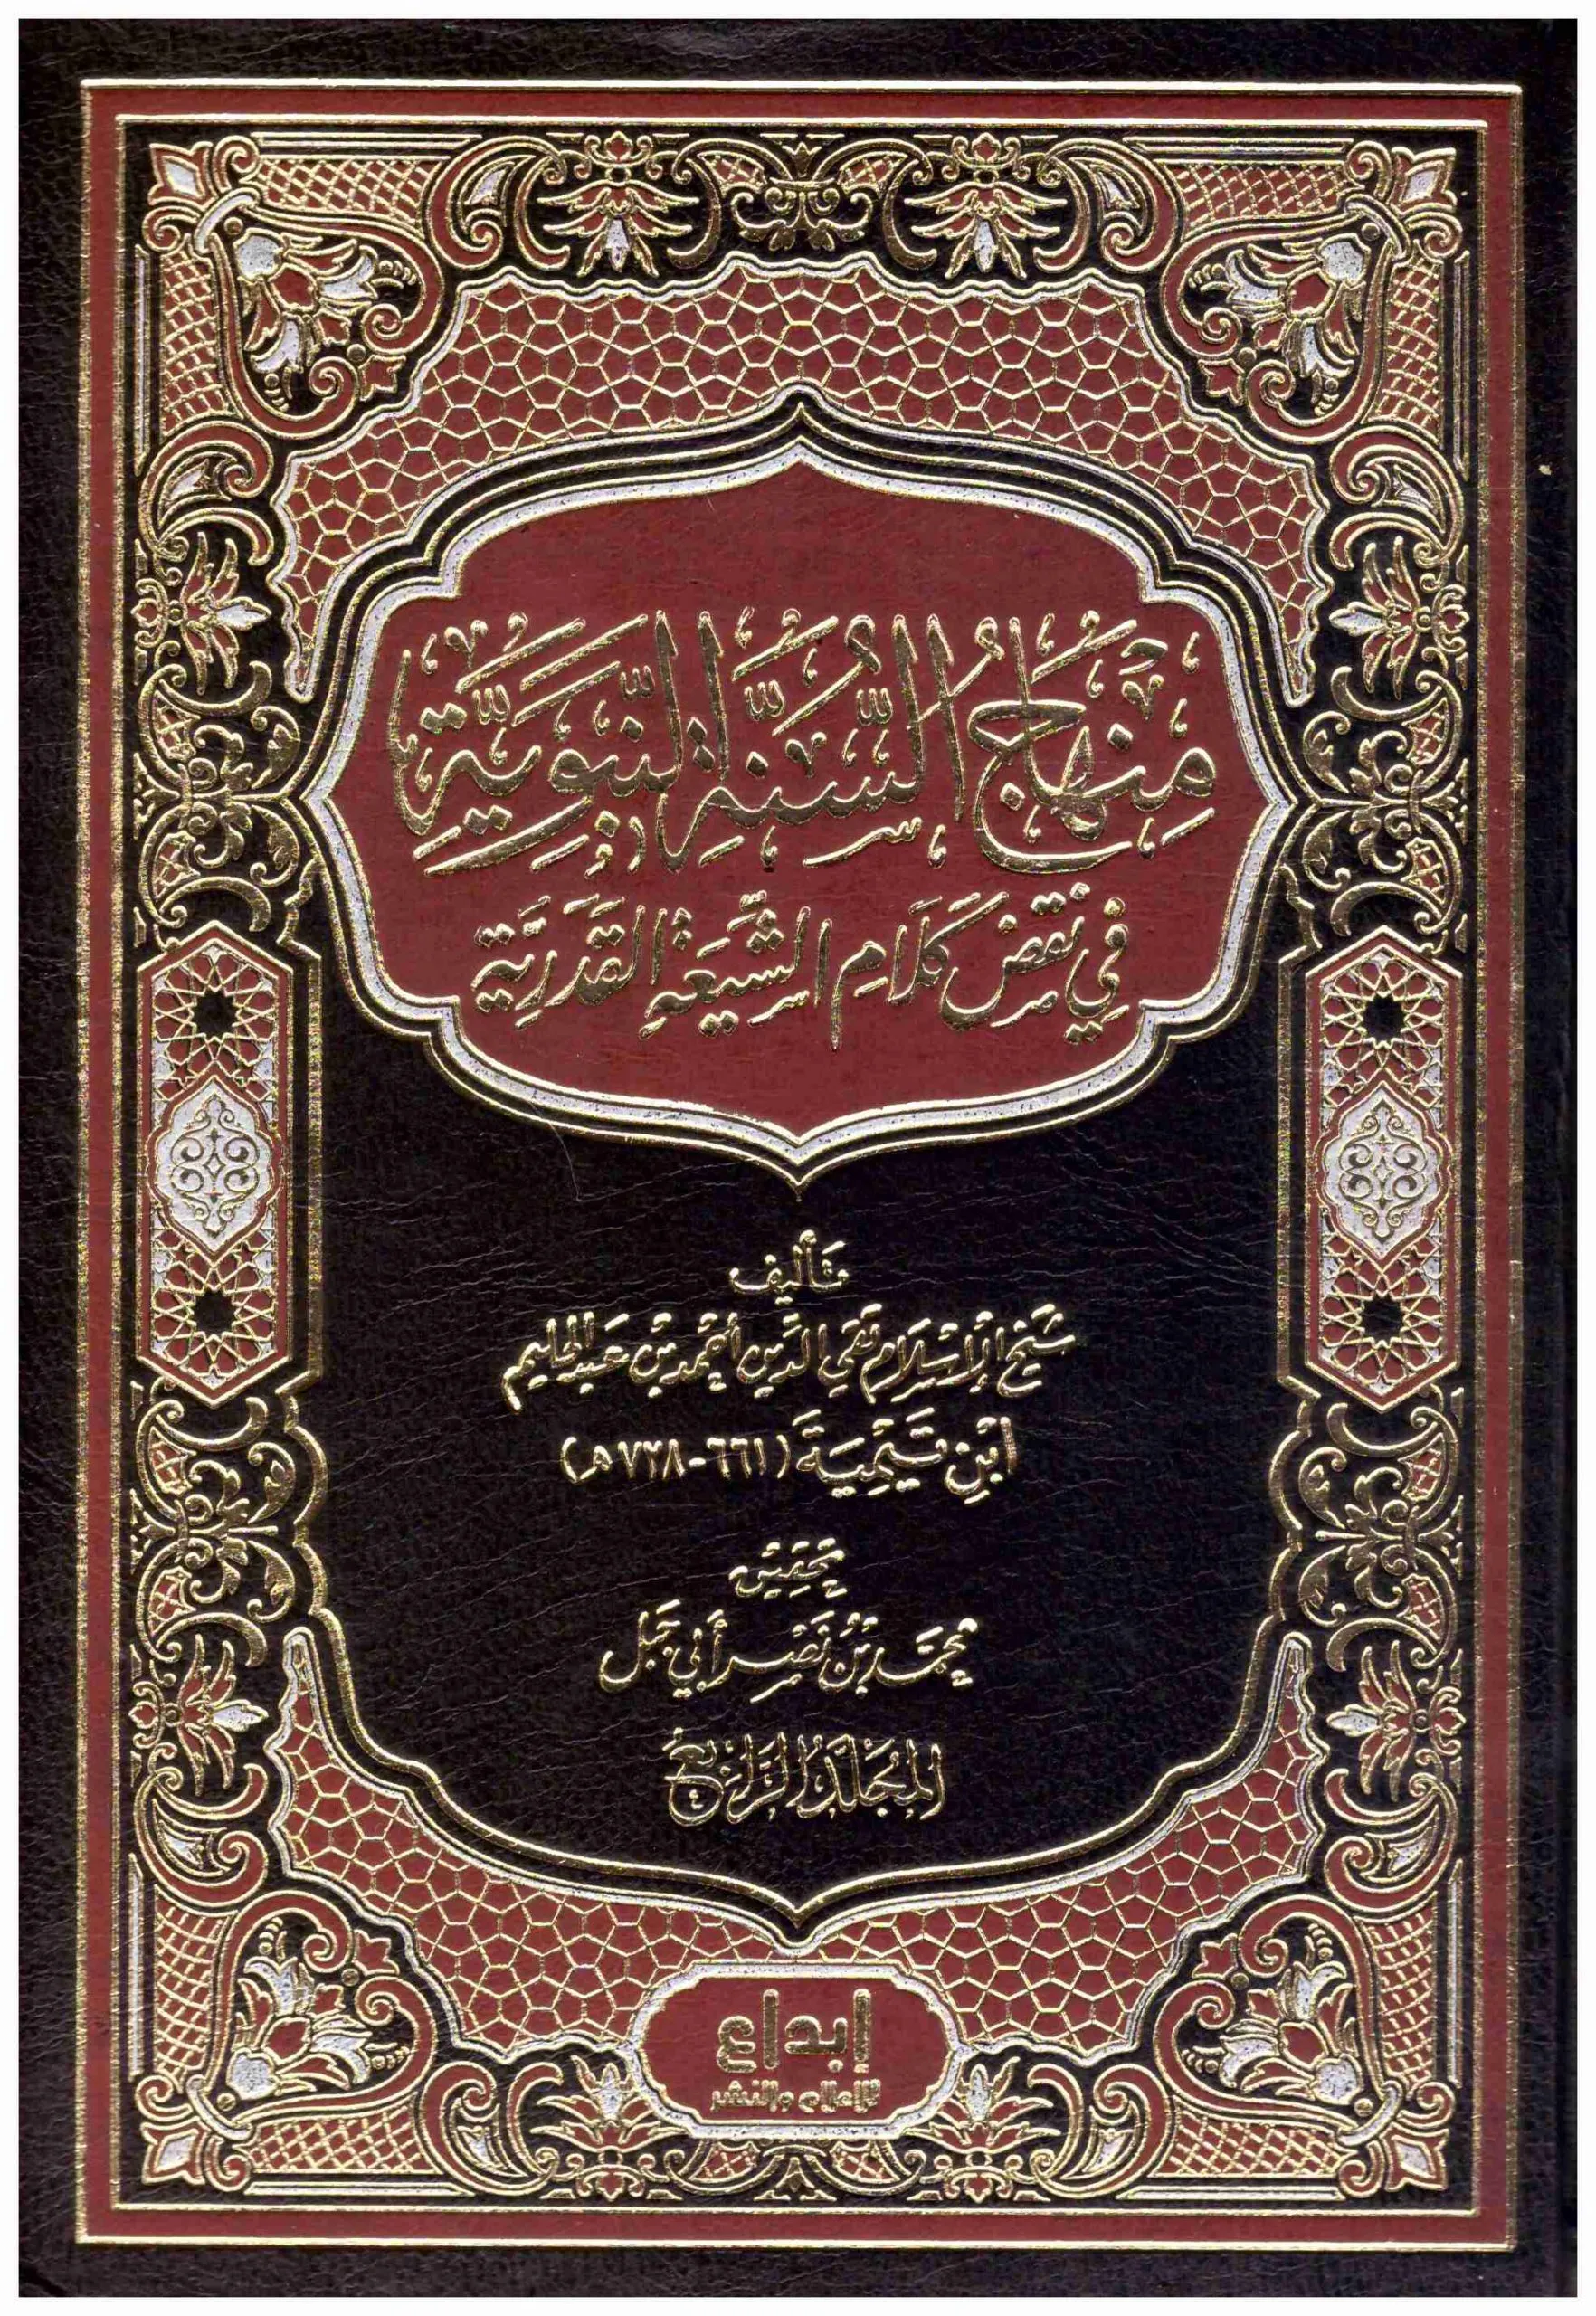 منهاج السنة النبوية
في نقض كلام الشيعة القدرية
تأليف
شيخ الإسلام تقي الدين أحمد بن عبد الحليم
ابن تيمية (٦٦١-٧٢٨هـ)
تحقيق
محمد بن نصر أبي جبل
المجلد الرابع
إبداع
للإعلام والنشر